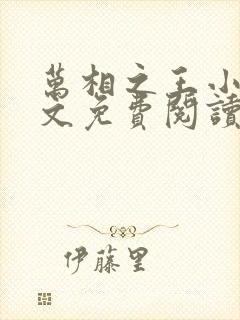 萬相之王小
文免費閱讀
伊藤里